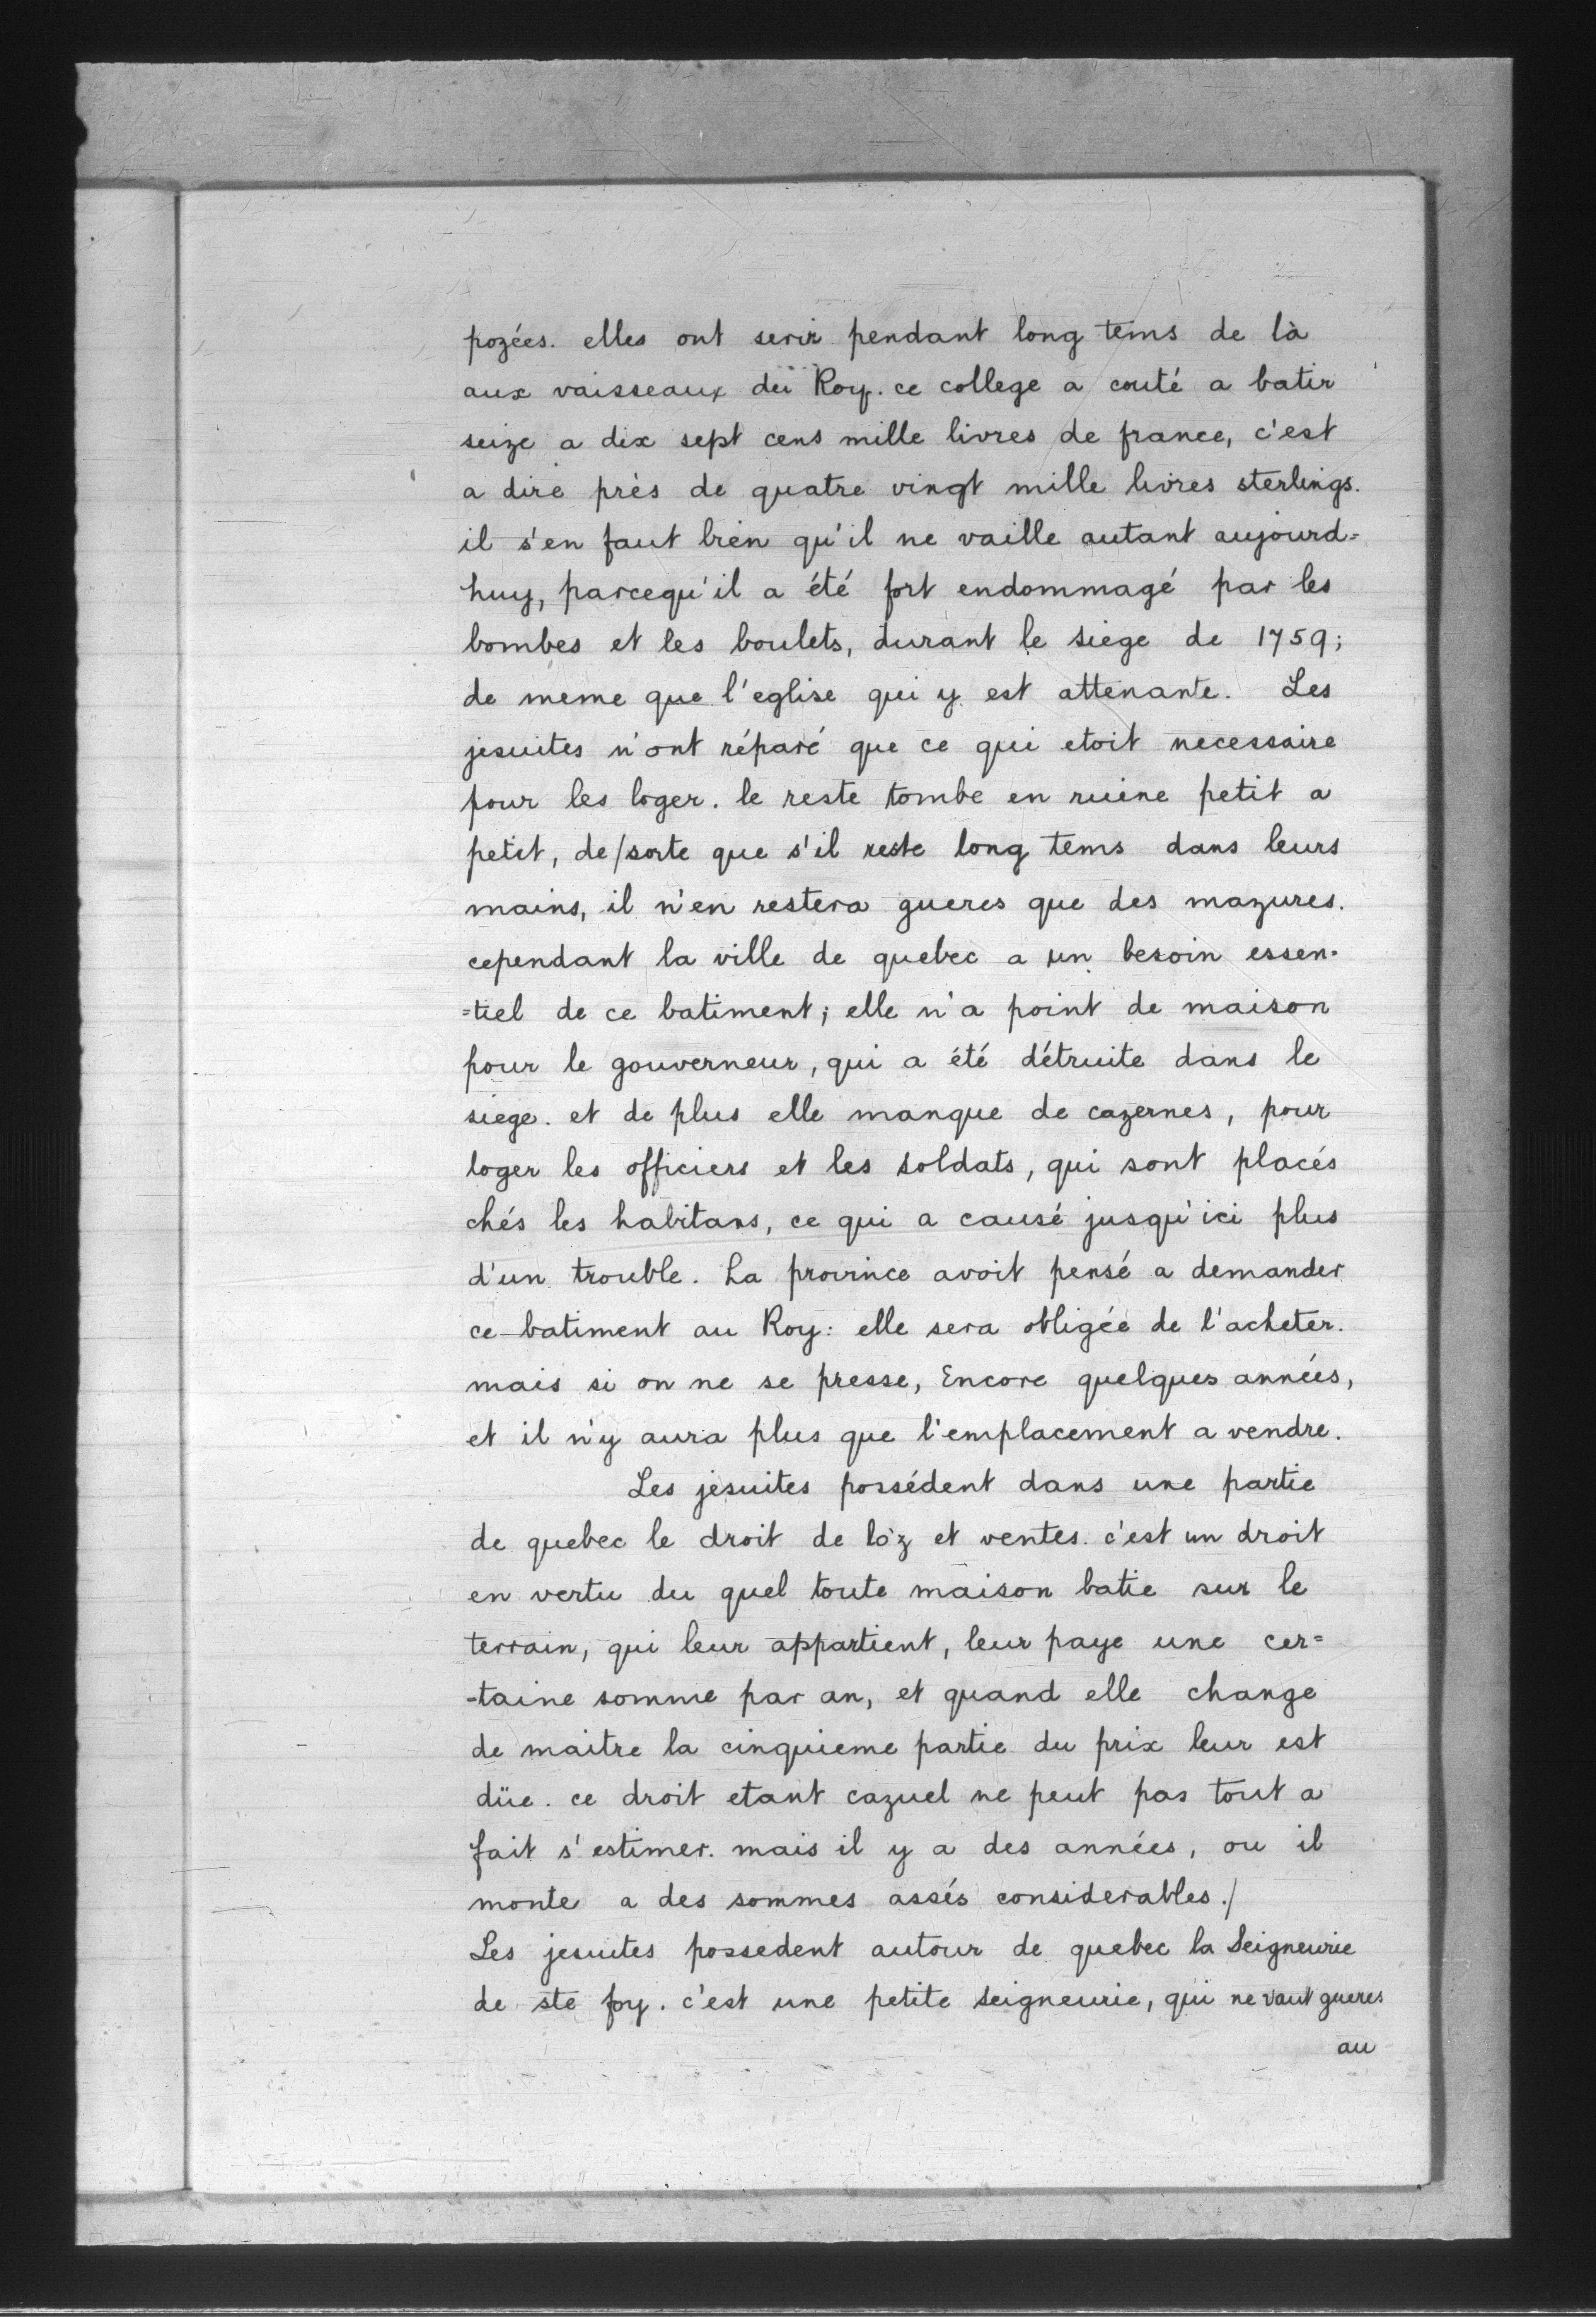 pozées. elles ont servir pendant long tems de là
aux vaisseaux du Roy. ce college a couté a batir
seize a dix sept cens mille livres de france, c'est
a dire près de quatre vingt mille livres sterlings.
il s'en faut bien qu'il ne vaille autant aujourd=
huy, parcequ'il a été fort endommagé par les
bombes et les boulets, durant le siege de 1759;
de meme que l'eglise qui y est attenante. Les
jesuites n'ont réparé que ce qui etoit necessaire
pour les loger. le reste tombe en ruine petit a
petit, de/sorte que s'il reste long tems dans leurs
mains, il n'en restera gueres que des mazures.
cependant la ville de quebec a un besoin essen-
=tiel de ce batiment; elle n'a point de maison
pour le gouverneur, qui a été détruite dans le
siege. et de plus elle manque de cazernes, pour
loger les officiers et les soldats, qui sont placés
chés les habitans, ce qui a causé jusqu'ici plus
d'un trouble. La province avoit pensé a demander
ce batiment au Roy: elle sera obligée de l'acheter.
mais si on ne se presse, Encore quelques années,
et il n'y aura plus que l'emplacement a vendre.
Les jesuites possédent dans une partie
de quebec le droit de lo'z et ventes. c'est un droit
en vertu du quel toute maison batie sur le
terrain, qui leur appartient, leur paye une cer=
=taine somme par an, et quand elle change
de maitre la cinquieme partie du prix leur est
düe. ce droit etant cazuel ne peut pas tout a
fait s'estimer. mais il y a des années, ou il
monte a des sommes assés considerables./
Les jesuites possedent autour de quebec la Seigneurie
de ste foy. c'est une petite seigneurie, qui ne vaut gueres
au